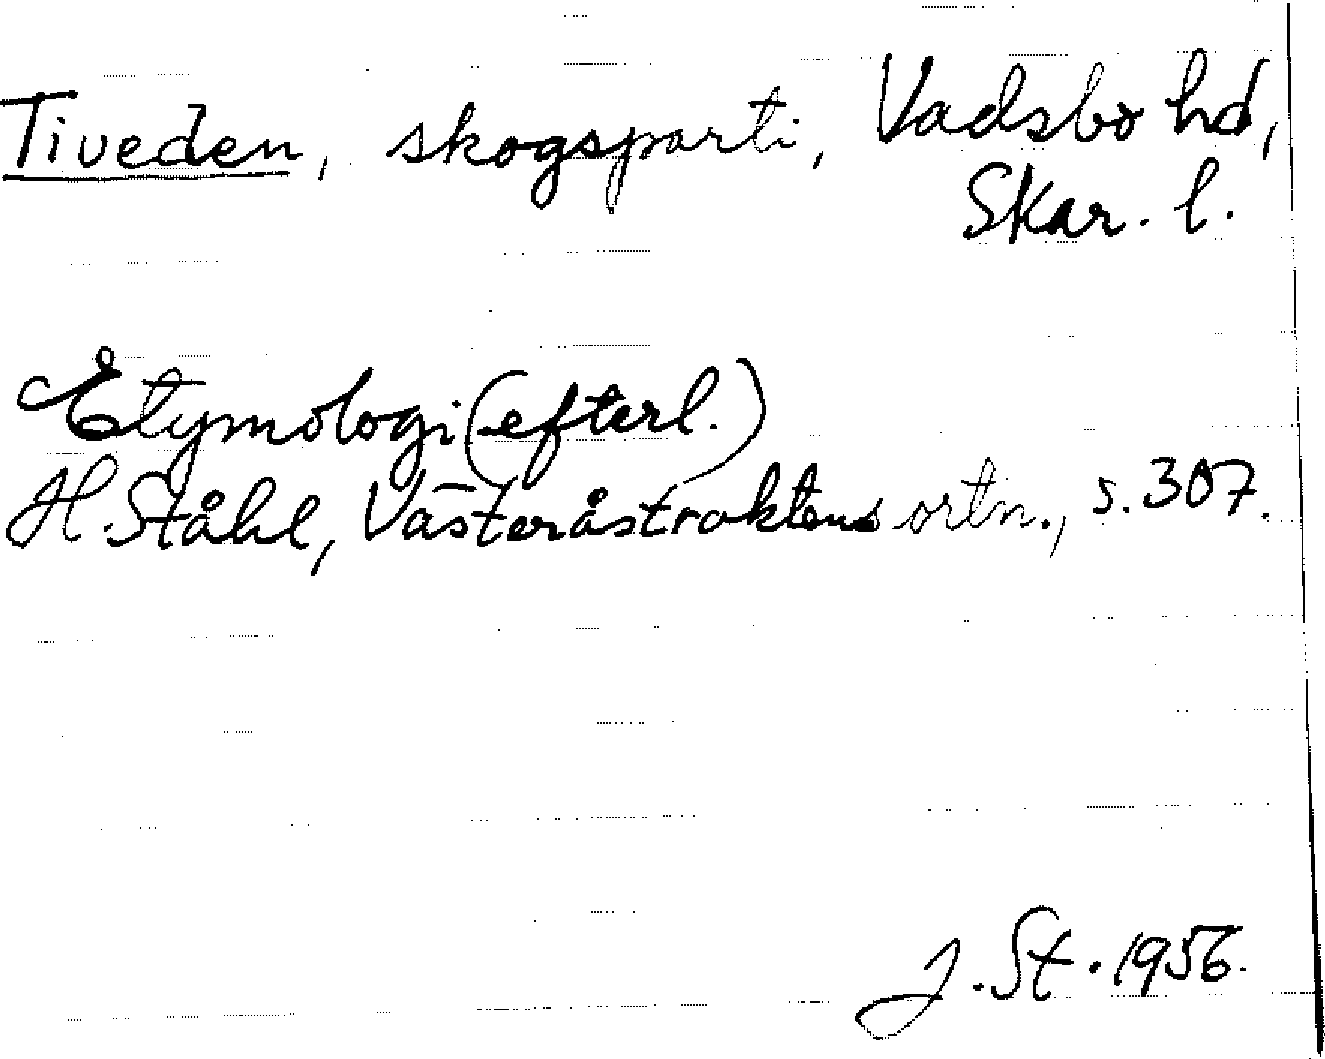 Tiveden, skogsparti, Vadsbo hd,
Skar. l.
Etymologi (efterl.)
H. Ståhl, Västeråstraktens ortn., s. 307.
J. St. 1956.